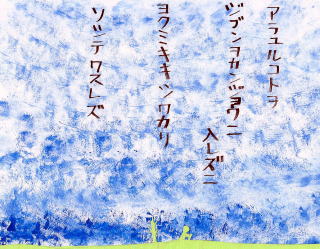 アラユルコトヲ
ジブンヲカンジョウニ
入レズニ
ヨクミキキシワカリ
ソシテワスレズ